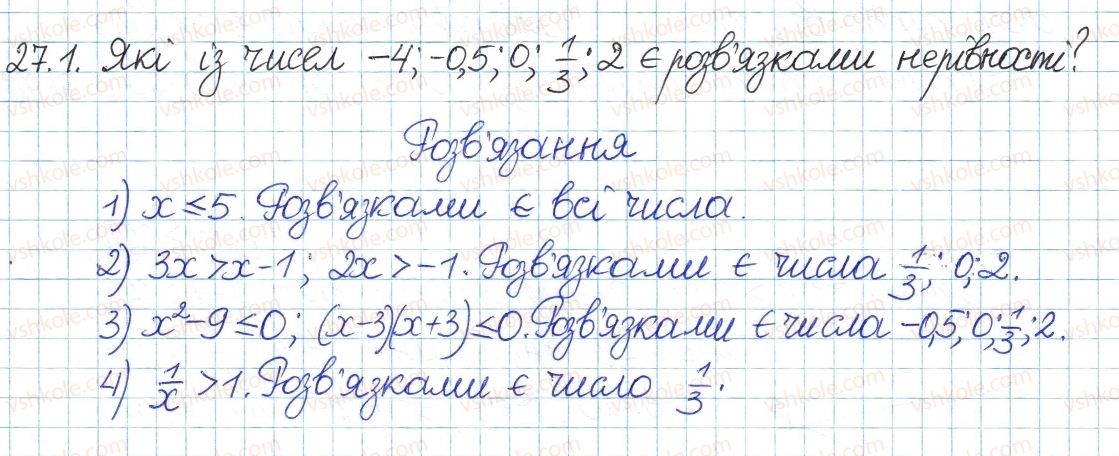 27.1. Які із чисел −4; −0,5; 0; 1/3; 2 є розв'язками нерівності?
Розв'язання
1) x ≤ 5. Розв'язками є всі числа.
2) 3x > x − 1; 2x > −1. Розв'язками є числа 1/3; 0; 2.
3) x² − 9 ≤ 0; (x−3)(x+3) ≤ 0. Розв'язками є числа −0,5; 0; 1/3; 2.
4) 1/x > 1. Розв'язками є число 1/3.
vshkole.com